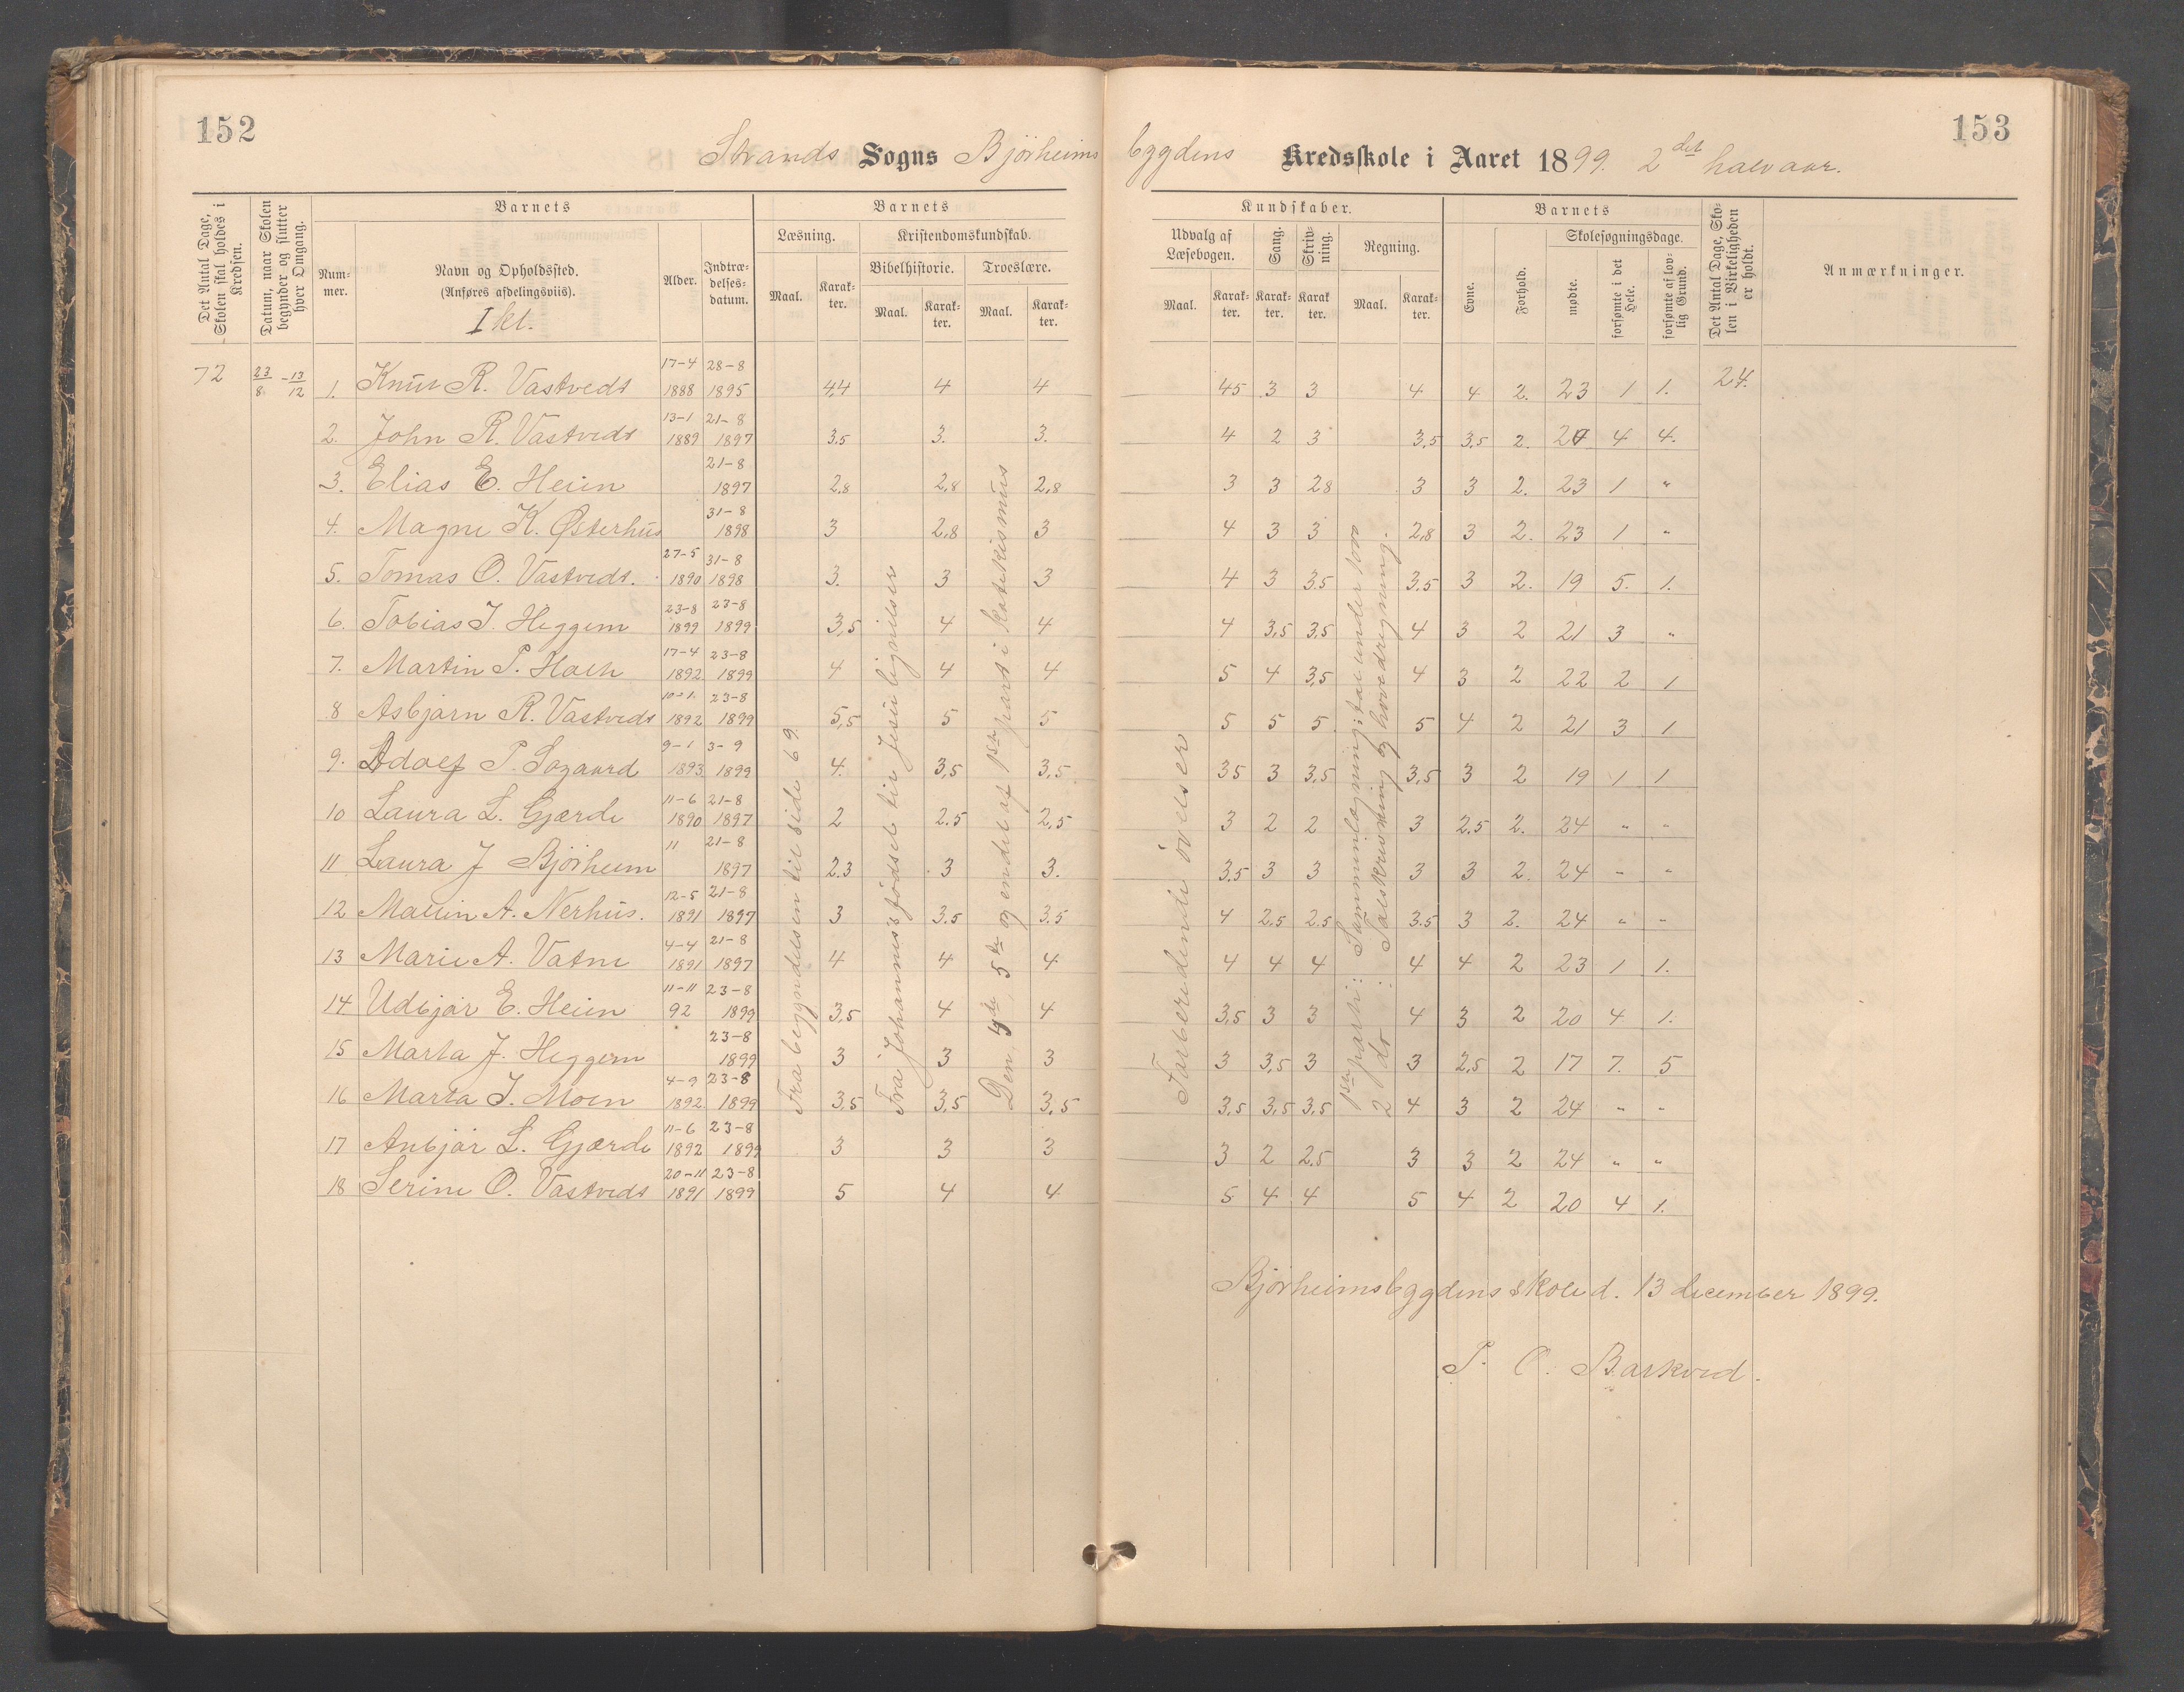 152
153
Strands Sogns Bjørheims bygdens Kredsskole i Aaret 1899. 2det halvaar.
Det Antal Dage, Skolen skal holdes i Kredsen.
Datum, naar Skolen begynder og slutter hver Omgang.
Barnets
Barnets
Kundskaber.
Barnets
Det Antal Dage, Skolen i Virkeligheden er holdt.
Anmærkninger.
Nummer.
Navn og Opholdssted.
(Anføres afdelingsviis).
I kl.
Alder.
Indtrædelsesdatum.
Læsning.
Maal. Karakter.
Kristendomskundskab.
Bibelhistorie. Troeslære.
Maal. Karakter. Maal. Karakter.
Udvalg af Læsebogen.
Maal. Karakter.
Sang. Karakter.
Skrivning. Karakter.
Regning.
Maal. Karakter.
Evne. Forhold.
Skolesøgningsdage.
mødte. forsømte i det Hele. forsømte af lovlig Grund.
72 23/8 – 13/12 1. Knut R. Vastvedt 17-4 1888 28-8 1895 4,4 4 4 45 3 3 4 4 2. 23 1 1. 24.
2. John R. Vastvedt 13-1 1889 21-8 1897 3.5 3. 3. 4 2 3 3,5 3,5 2. 20 4 4.
3. Elias E. Heien 21-8 1897 2,8 2,8 2,8 3 3 28 3 3 2. 23 1 "
4. Magne K. Østerhus 31-8 1898 3 2,8 3 4 3 3 2,8 3 2. 23 1 "
5. Tomas O. Vastvedt. 27-5 1890 31-8 1898 3. 3 3 4 3 3.5 3.5 3 2. 19 5. 1.
6. Tobias J. Heggem 23-8 1899 23-8 1899 3,5 4 4 4 3,5 3,5 4 3 2 21 3 "
7. Martin P. 17-4 1892 23-8 1899 4 4 4 5 4 3,5 4 3 2 22 2 1
8 Asbjørn R. Vastvedt 10-1. 1892 23-8 1899 5,5 5 5 5 5 5 5 4 2 21 3 1
9. Adolf P. 9-1 1893 3-9 1899 4. 3,5 3,5 35 3 3,5 3,5 3 2 19 1 1
10 Laura L. Gjærde 11-6 1890 21-8 1897 2 2.5 2,5 3 2 2 3 2.5 2. 24 " "
11 Laura J Bjørheim 11 21-8 1897 2.3 3 3. 3.5 3 3 3 3 2. 24 " "
12 A. Nerhus. 12-5 1891 21-8 1897 3 3.5 3.5 4 2.5 2.5 3.5 3 2. 24 " "
13 Marie A. Vatne 4-4 1891 21-8 1897 4 4 4 4 4 4 4 4 2 23 1 1.
14 Udbjør E. Heien 11-11 92 23-8 1899 3,5 4 4 3,5 3 3 4 3 2 20 4 1.
15 Marta J. Heggem 23-8 1899 3 3 3 3 3,5 3 3 2,5 2 17 7. 5
16 Marta J. Moen 4-9 1892. 23-8 1899 3,5 3,5 3,5 3,5 3,5 3,5 4 3 2 24 " "
17 Anbjør L. Gjærde 11-6 1892 23-8 1899 3 3 3 3 2 2.5 3 3 2 24 " "
18 Serine O. Vastvedt 20-11 1891 23-8 1899 5 4 4 5 4 4 5 4 2 20 4 1.
Fra begyndelsen til side 69.
Fra Johannes's fødsel til Jesu lignelser
Den 4de, 5te og endel af 1ste part i katekismus
Forberedende øvelser
1ste parti: Sammenlægning: tal under 1000
2 do : Talskrivning og hovedregning.
Bjørheimsbygdens skole d. 13 december 1899.
P. O. Barkved.